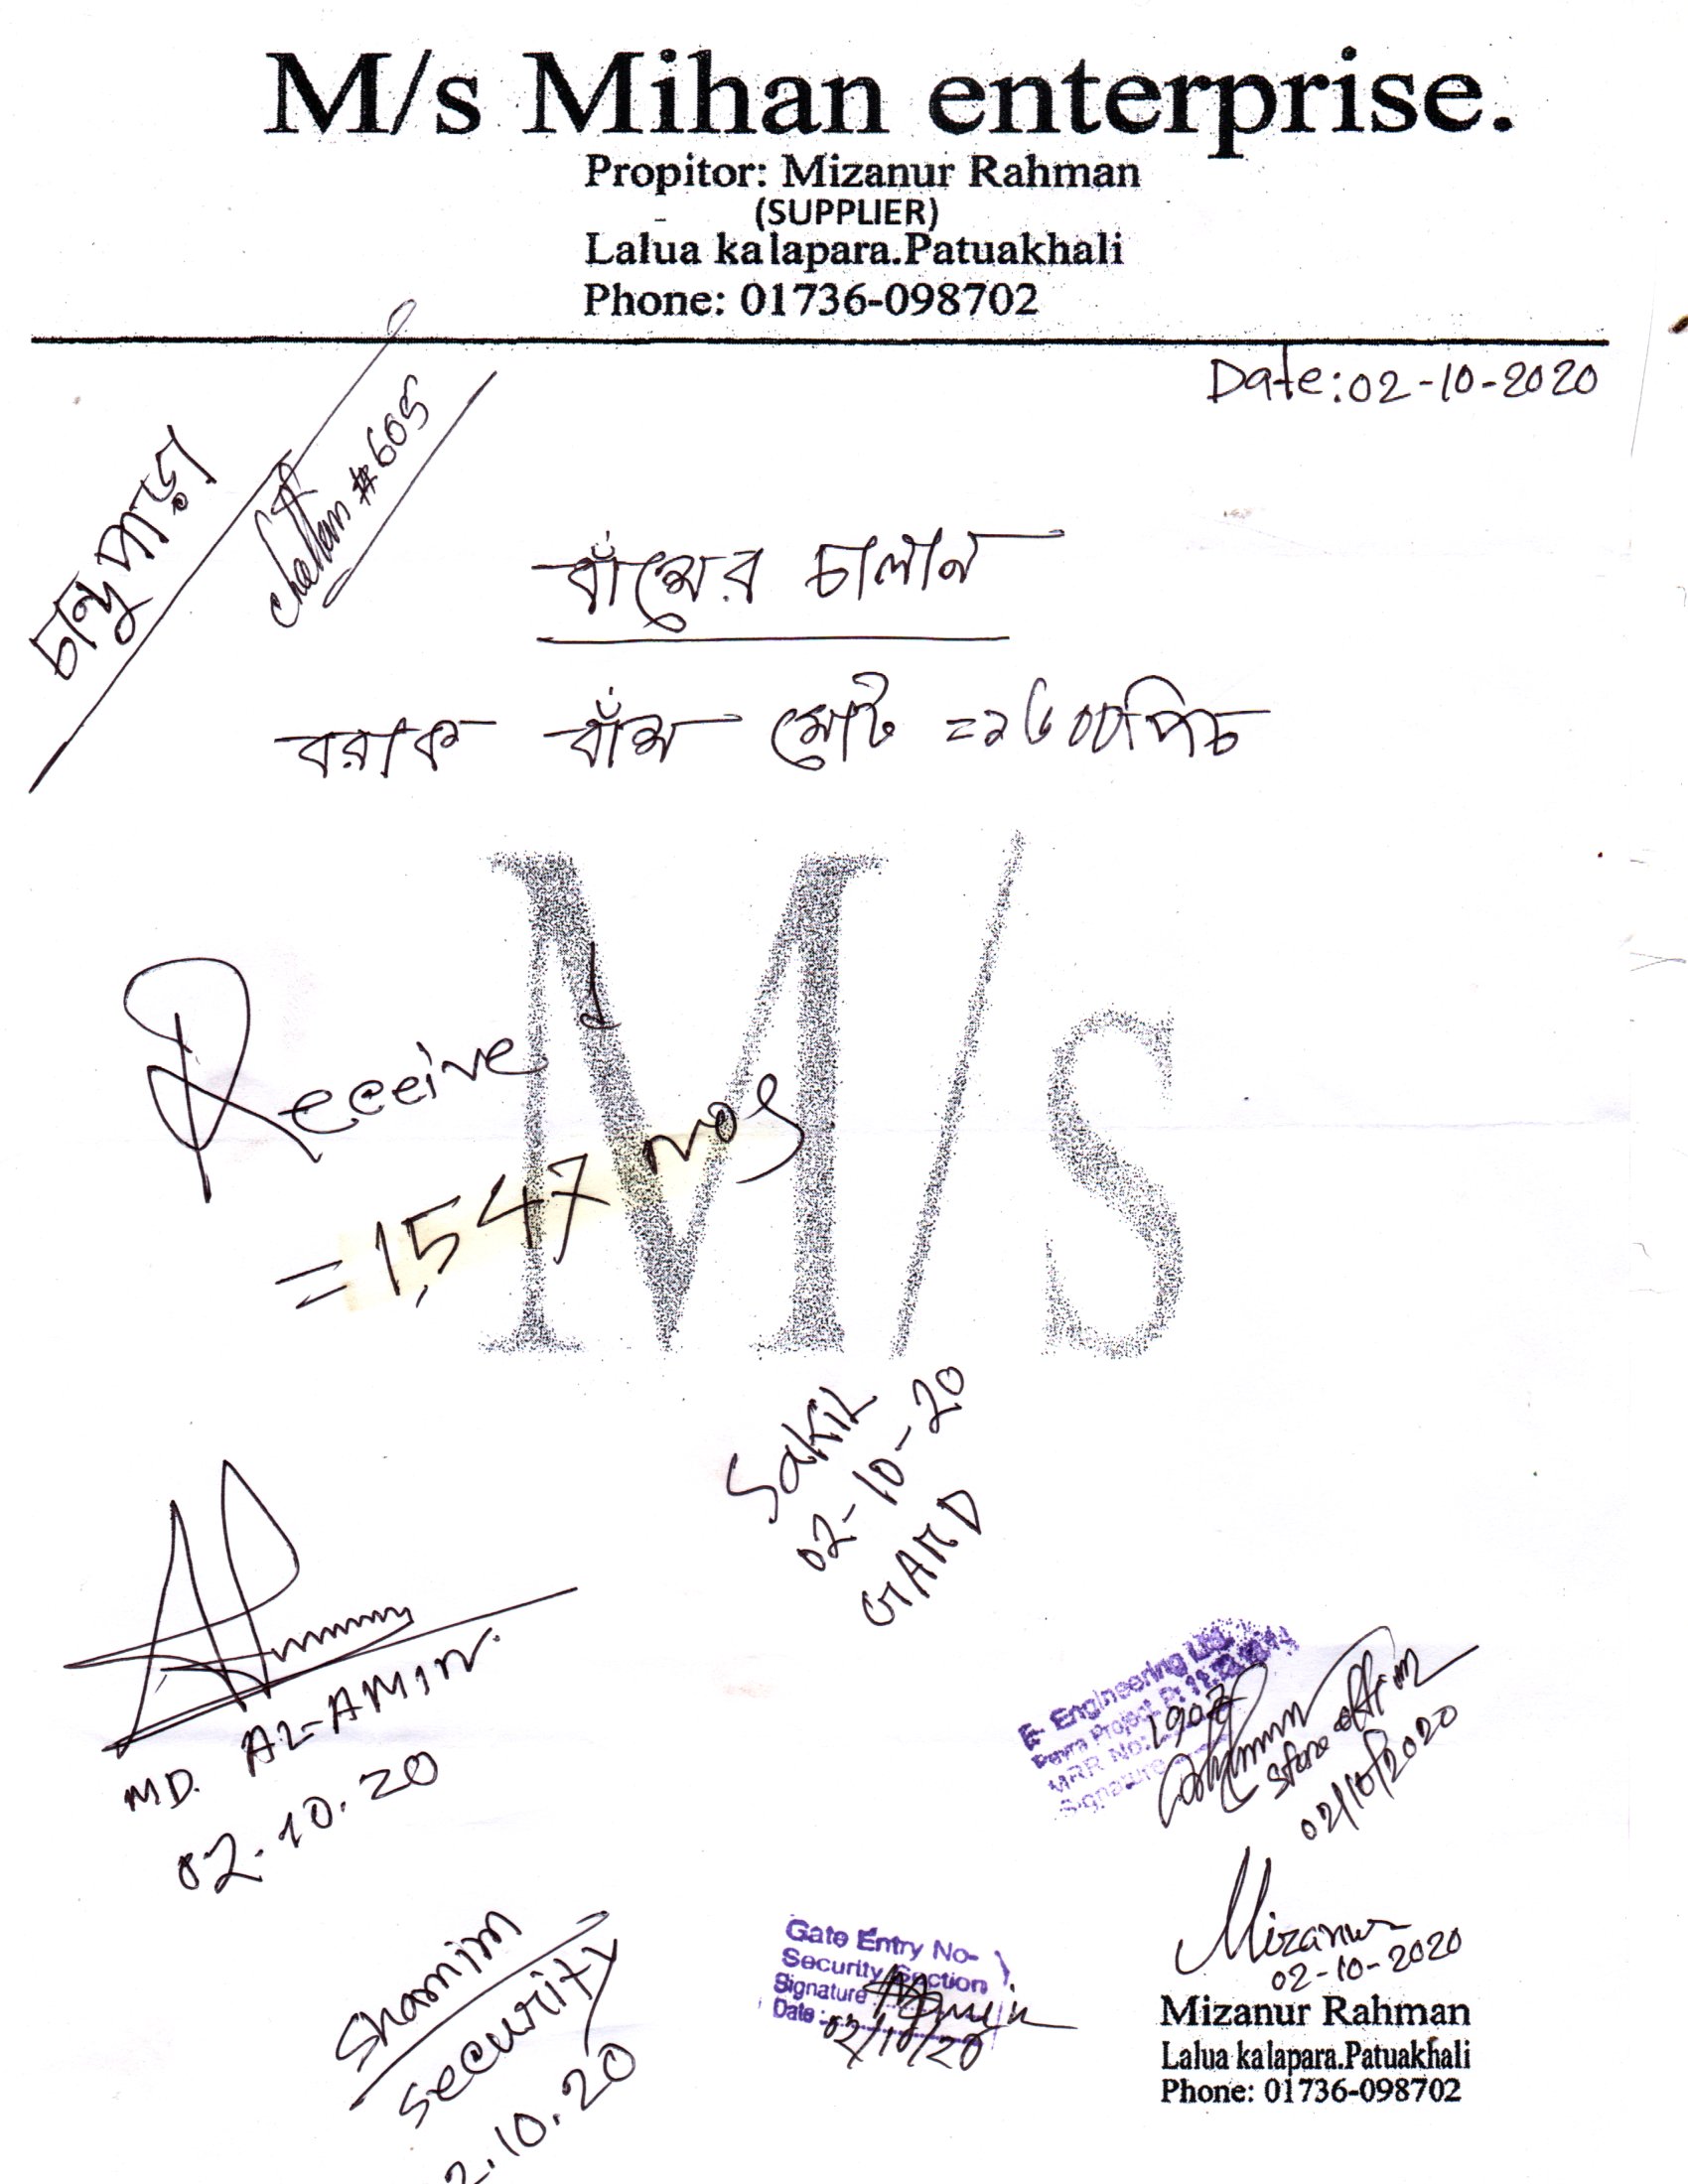 M/s Mihan enterprise.
Propitor: Mizanur Rahman
(SUPPLIER)
Lalua kalapara.Patuakhali
Phone: 01736-098702
Date: 02-10-2020
চান্দুপাড়া
challan #605
বাঁশের চালান
বরাক বাঁশ মোট = ১৬০০ পিচ
M/s
Received
= 1,547 nos
Sakil
02-10-20
GARD
MD. AL-AMIN
02.10.20
E- Engineering Ltd.
MRR No: 1907
Signature
Store
02/10/2020
Shamim
Security
2.10.20
Gate Entry No-
Security Section
Signature
Date: 02/10/20
Mizanur
02-10-2020
Mizanur Rahman
Lalua kalapara.Patuakhali
Phone: 01736-098702